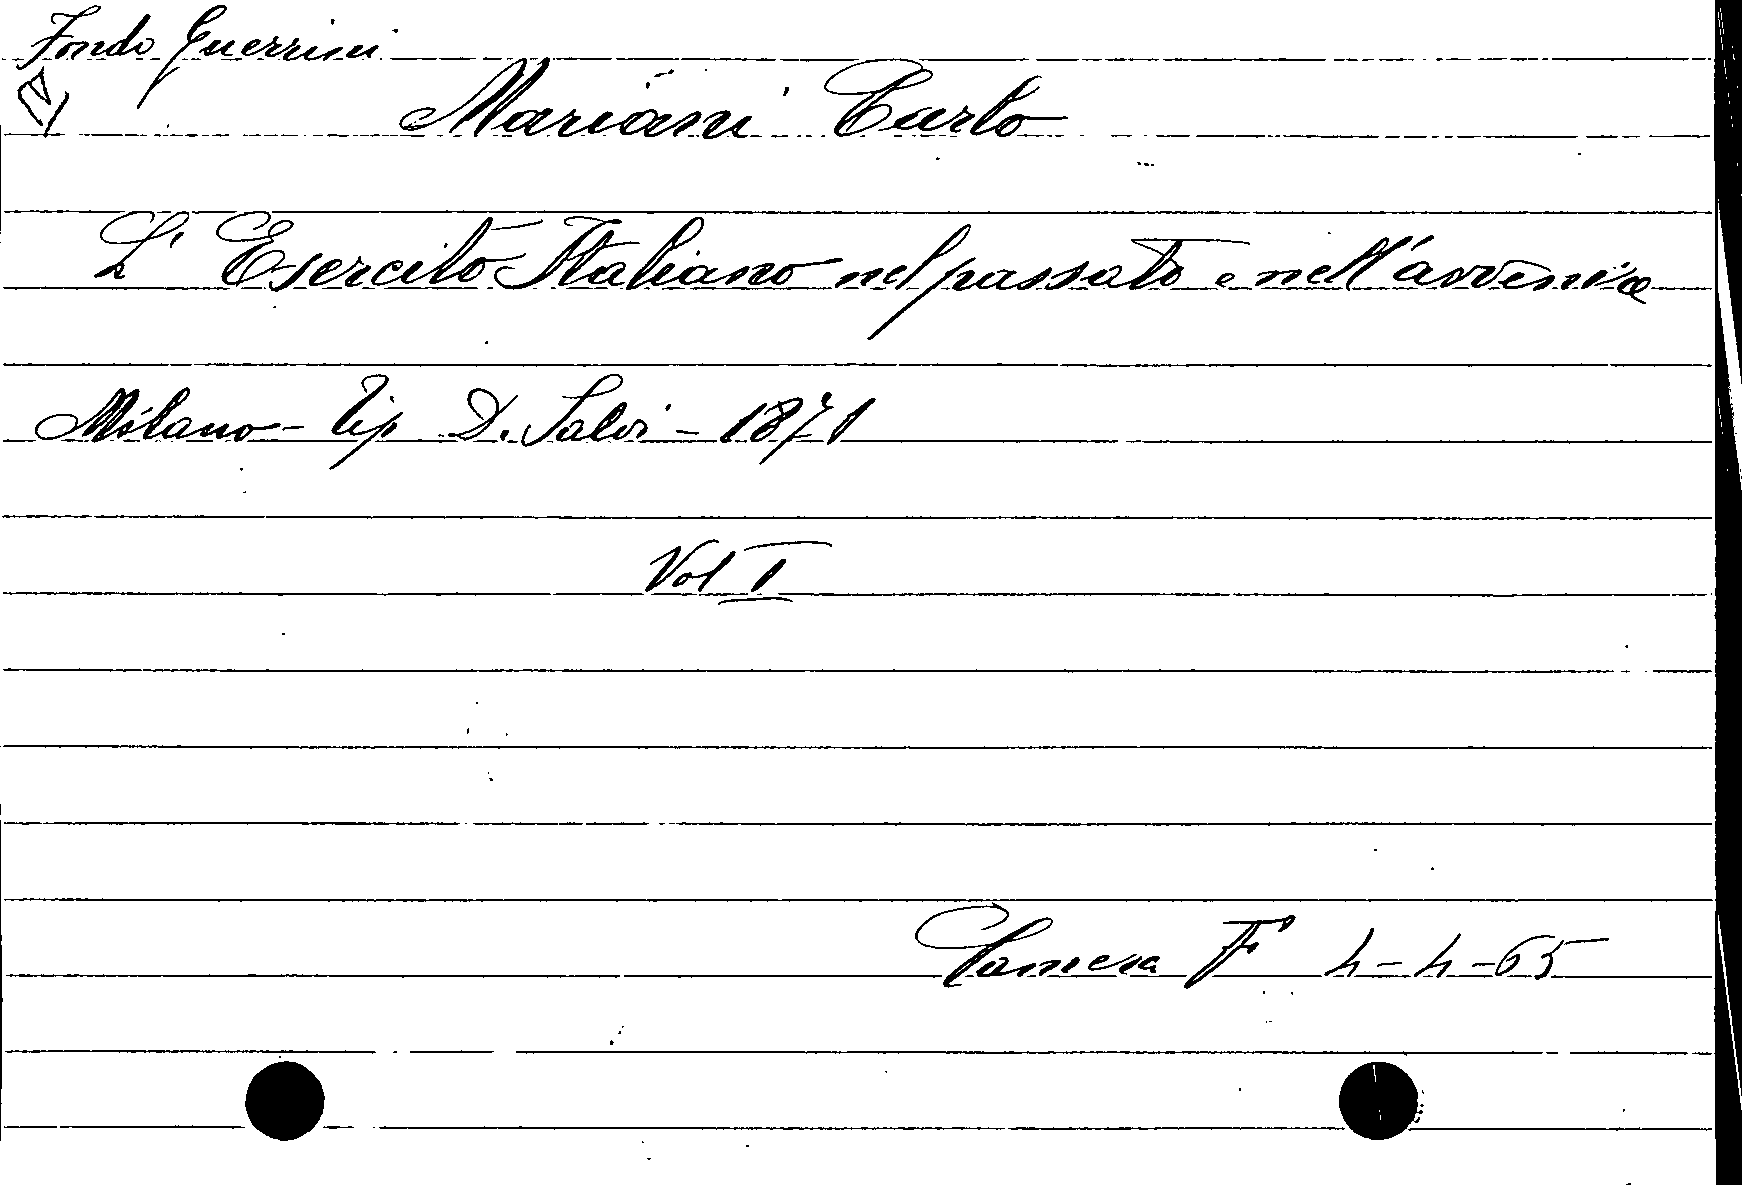 Fondo Guerrini
Mariani Carlo
L'Esercito Italiano nel passato e nell'avvenire
Milano - Tip D. Salvi - 1871
Vol I
Camera F 4-4-65